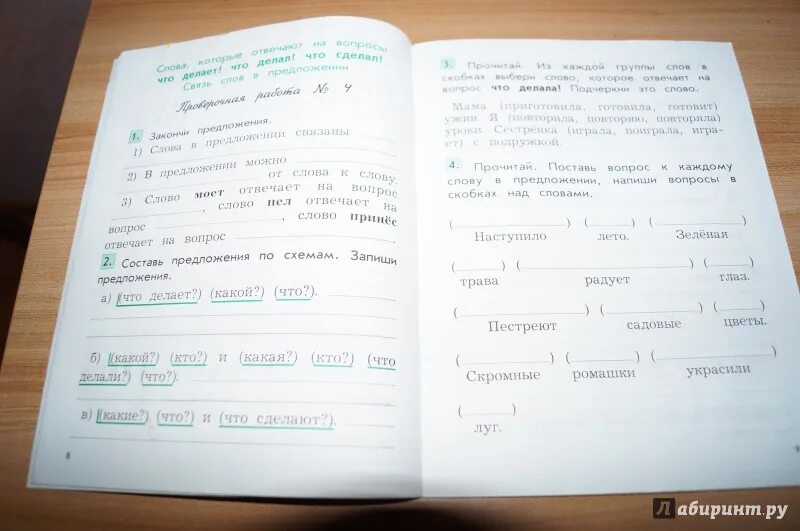 Слова, которые отвечают на вопросы
что делает? что делал? что сделал?
Связь слов в предложении
Проверочная работа № 4
1. Закончи предложения.
1) Слова в предложении связаны
2) В предложении можно
от слова к слову.
3) Слово моет отвечает на вопрос
, слово пел отвечает на
вопрос , слово принёс
отвечает на вопрос .
2. Составь предложения по схемам. Запиши
предложения.
а) (что делает?) (какой?) (что?).
б) (какой?) (кто?) и (какая?) (кто?) (что
делали?) (что?).
в) (какие?) (что?) и (что сделают?).
8
3. Прочитай. Из каждой группы слов в
скобках выбери слово, которое отвечает на
вопрос что делала? Подчеркни это слово.
Мама (приготовила, готовила, готовит)
ужин. Я (повторила, повторяю, повторяла)
уроки. Сестрёнка (играла, поиграла, игра-
ет) с подружкой.
4. Прочитай. Поставь вопрос к каждому
слову в предложении, напиши вопросы в
скобках над словами.
( ) ( ) ( )
Наступило лето. Зелёная
( ) ( ) ( )
трава радует глаз.
( ) ( ) ( )
Пестреют садовые цветы.
( ) ( ) ( )
Скромные ромашки украсили
( )
луг.
Лабиринт.ру